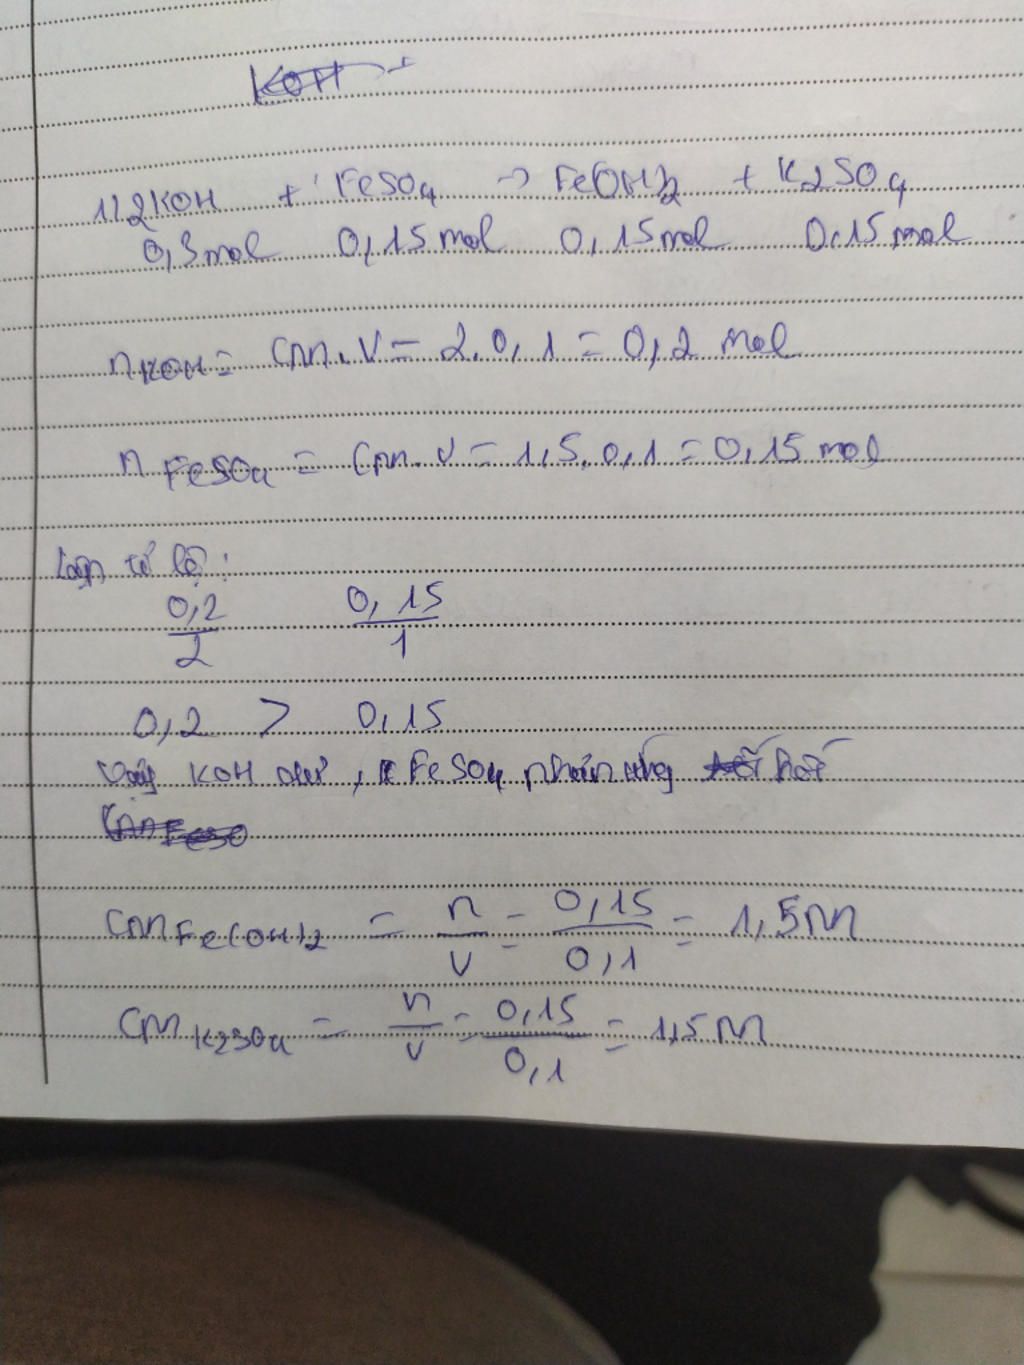 KOH +
1) 2KOH + FeSO4 → Fe(OH)2 + K2SO4
0,3mol 0,15mol 0,15mol 0,15mol
nKOH = Cm.V = 2.0,1 = 0,2 mol
nFeSO4 = Cm.V = 1,5.0,1 = 0,15 mol
Lập tỉ lệ:
0,2/2 0,15/1
0,2 > 0,15
Vậy KOH dư, FeSO4 phản ứng hết
CmFeSO
CmFe(OH)2 = n/V = 0,15/0,1 = 1,5M
CmK2SO4 = n/V = 0,15/0,1 = 1,5M